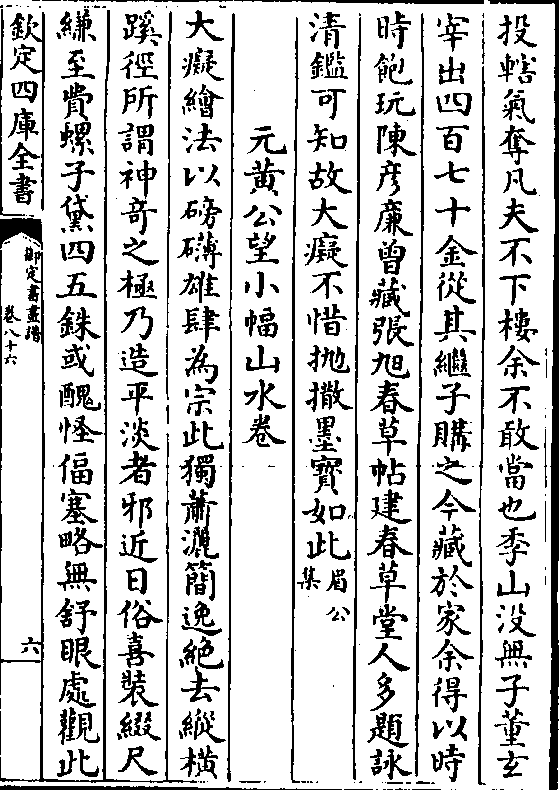 投轄氣奪凡夫不下樓余不敢當也季山没無子董玄
宰出四百七十金從其繼子購之今藏於家余得以時
時飽玩陳彦廉曾藏張旭春草帖建春草堂人多題詠
清鑑可知故大癡不惜抛撒墨寶如此眉公集
元黄公望小幅山水卷
大癡繪法以磅礴雄肆為宗此獨蕭灑簡逸絶去縱横
蹊徑所謂神奇之極乃造平淡者邪近日俗喜裝綴尺
縑至費螺子黛四五銖或醜怪偪塞略無舒眼處觀此
欽定四庫全書
御定書畫譜
卷八十六
六